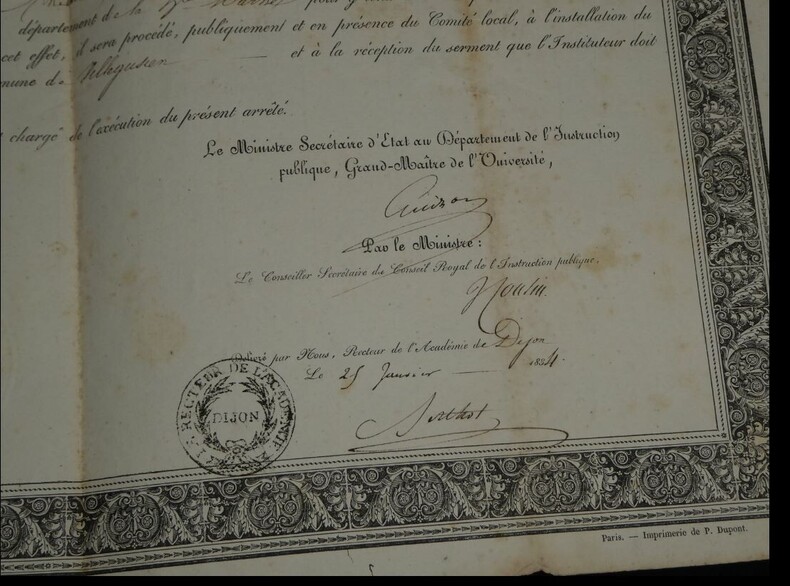 département de la Hte Marne pour y
cet effet, il sera procédé, publiquement et en présence du Comité local, à l'installation du
mune de et à la réception du serment que l'Instituteur doit
chargé de l'exécution du présent arrêté.
Le Ministre Secrétaire d'Etat au Département de l'Instruction
publique, Grand-Maître de l'Université,
Guizot
Par le Ministre :
Le Conseiller Secrétaire du Conseil Royal de l'Instruction publique,
Délivré par Nous, Recteur de l'Académie de Dijon
Le 25 Janvier — 1834.
RECTEUR DE L'ACADEMIE
DIJON
Berthot
Paris. — Imprimerie de P. Dupont.